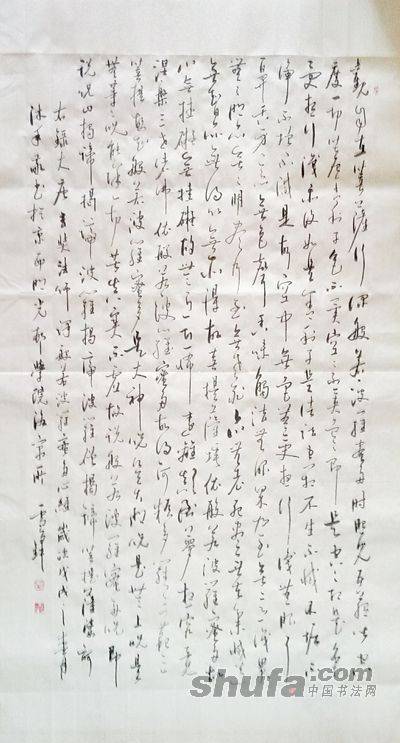 觀自在菩薩行深般若波羅蜜多時照見五蘊皆空
度一切苦厄舍利子色不異空空不異色色即是空空即是色受
想行識亦復如是舍利子是諸法空相不生不滅不垢不
淨不增不減是故空中無色無受想行識無眼耳
鼻舌身意無色聲香味觸法無眼界乃至無意識界
無無明亦無無明盡乃至無老死亦無老死盡無苦集滅道
無智亦無得以無所得故菩提薩埵依般若波羅蜜多故
心無掛礙無掛礙故無有恐怖遠離顛倒夢想究竟
涅槃三世諸佛依般若波羅蜜多故得阿耨多羅三藐三
菩提故知般若波羅蜜多是大神咒是大明咒是無上咒是
無等等咒能除一切苦真實不虛故說般若波羅蜜多咒即
說咒曰揭諦揭諦波羅揭諦波羅僧揭諦菩提薩婆訶
右錄大唐玄奘法師譯般若波羅蜜多心經歲次戊戌之春月
沐手敬書於京
shufa.com
中国书法网